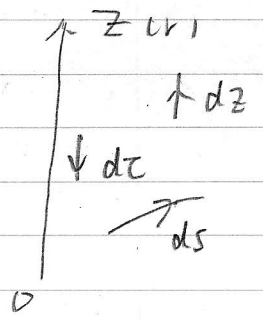 Z (r)
dz
dτ
ds
0